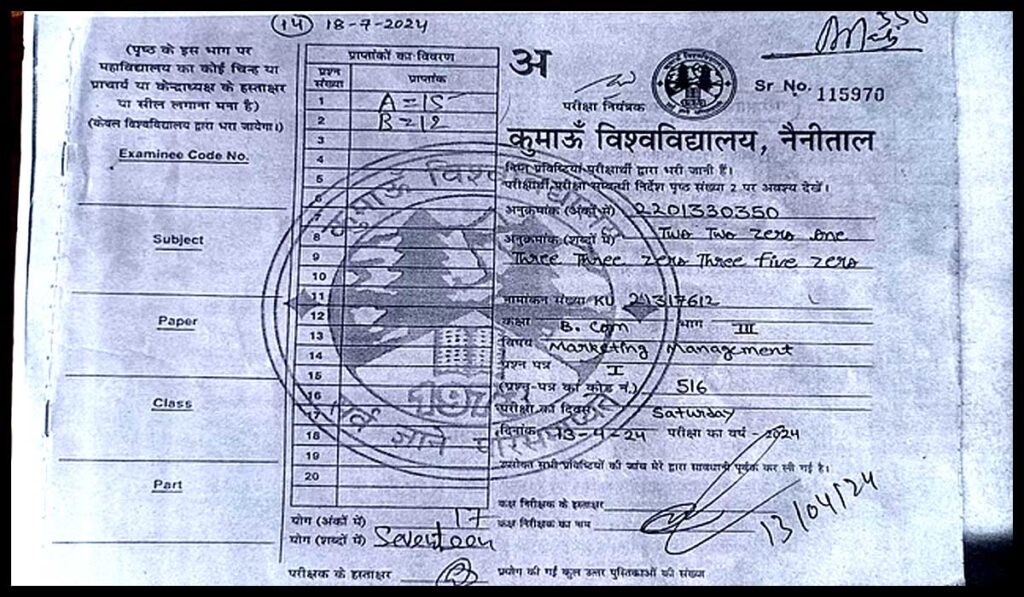 (14) 18-7-2024
(पृष्ठ के इस भाग पर
महाविद्यालय का कोई चिन्ह या
प्राचार्य या केन्द्राध्यक्ष के हस्ताक्षर
या सील लगाना मना है)
(केवल विश्वविद्यालय द्वारा भरा जायेगा।)
Examinee Code No.
Subject
Paper
Class
Part
प्राप्तांकों का विवरण
प्रश्न संख्या प्राप्तांक
1 A = 15
2 B = 12
3
4
5
6
7
8
9
10
11
12
13
14
15
16
17
18
19
20
योग (अंकों में) 17
योग (शब्दों में) Seventeen
परीक्षक के हस्ताक्षर
350
अ
Sr No. 115970
परीक्षा नियंत्रक
कुमाऊँ विश्वविद्यालय, नैनीताल
निम्न प्रविष्टियाँ परीक्षार्थी द्वारा भरी जानी हैं।
परीक्षार्थी परीक्षा सम्बन्धी निर्देश पृष्ठ संख्या 2 पर अवश्य देखें।
अनुक्रमांक (अंकों में) 2201330350
अनुक्रमांक (शब्दों में) Two Two Zero one
Three Three zero Three five zero
नामांकन संख्या KU 21317612
कक्षा B. Com भाग III
विषय Marketing Management
प्रश्न पत्र I
(प्रश्न-पत्र का कोड नं.) 516
परीक्षा का दिवस Saturday
दिनांक 13-4-24 परीक्षा का वर्ष - 2024
उपरोक्त सभी प्रविष्टियों की जांच मेरे द्वारा सावधानी पूर्वक कर ली गई है।
कक्ष निरीक्षक के हस्ताक्षर
कक्ष निरीक्षक का नाम
13/04/24
प्रयोग की गई कुल उत्तर पुस्तिकाओं की संख्या